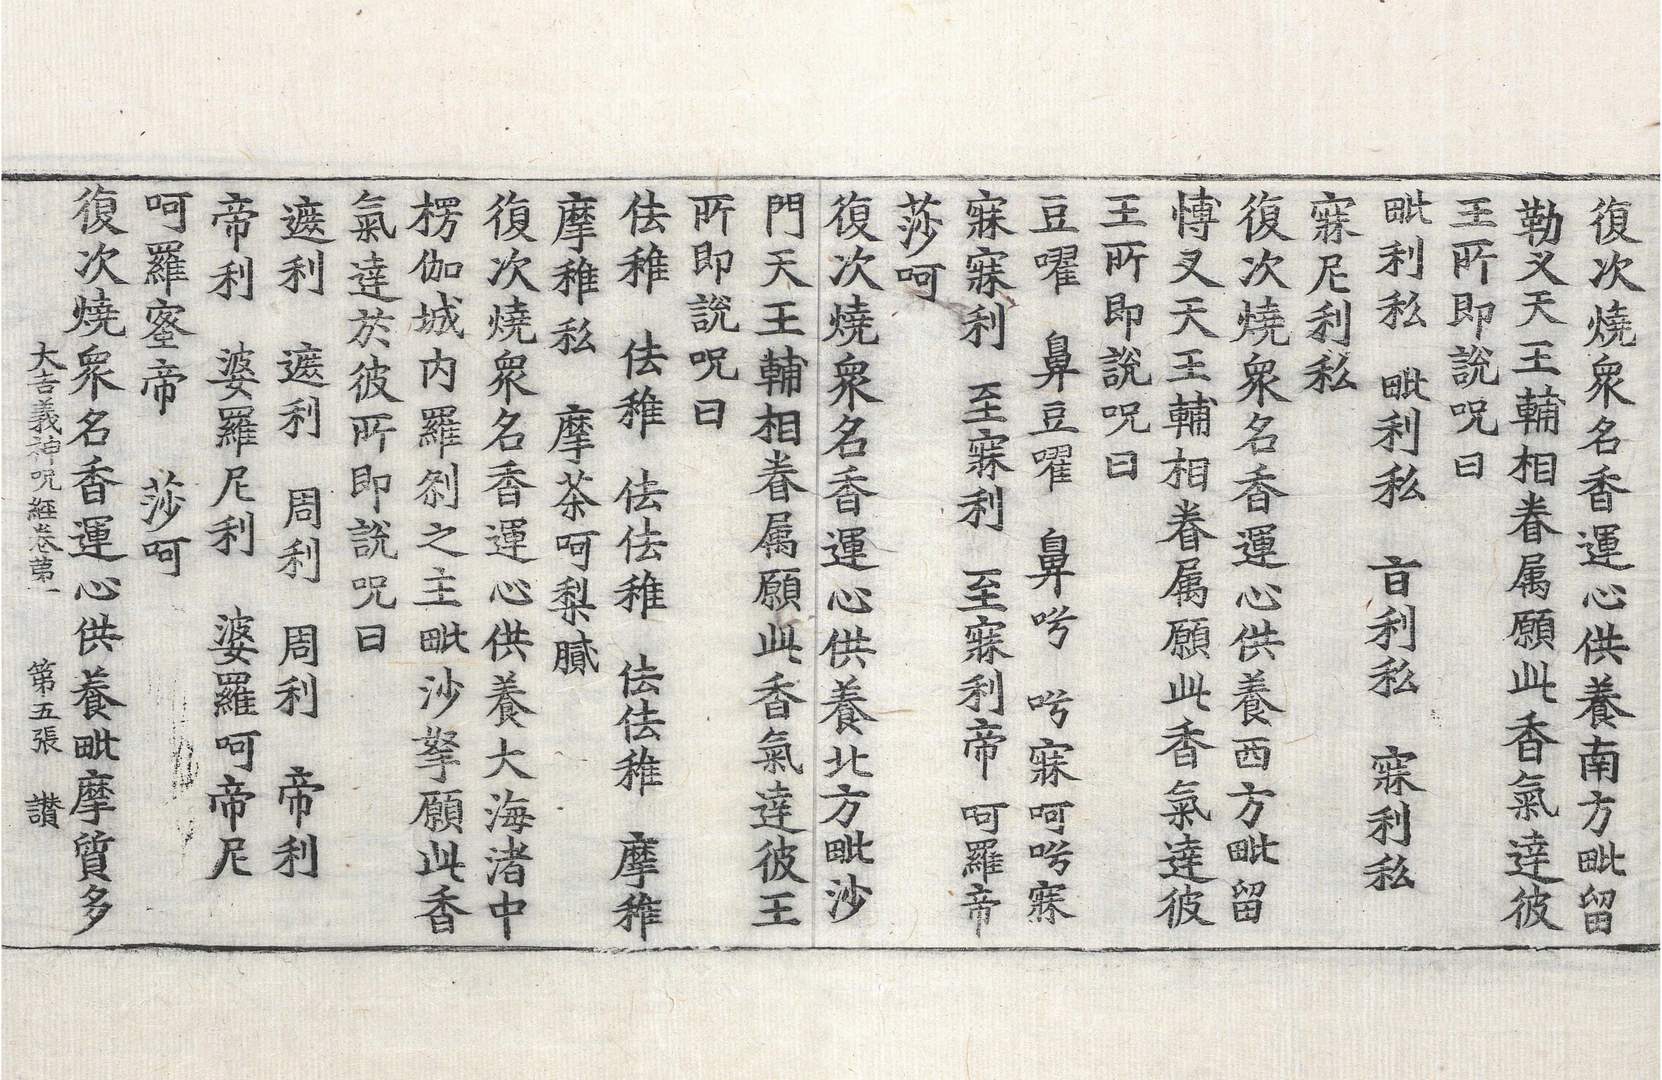 復次燒衆名香運心供養南方毗留
勒叉天王輔相眷属願此香氣達彼
王所即說呪曰
毗利私　毗利私　利私　寐利私
寐尼利私
復次燒衆名香運心供養西方毗留
博叉天王輔相眷属願此香氣達彼
王所即說呪曰
豆嚁　鼻豆嚁　鼻吟　吟寐呵吟寐
寐寐利　至寐利　至寐利帝　呵羅帝
莎呵
復次燒衆名香運心供養北方毗沙
門天王輔相眷属願此香氣達彼王
所即說呪曰
佉稚　佉稚　佉佉稚　佉佉稚　摩稚
摩稚私　摩荼呵梨膩
復次燒衆名香運心供養大海渚中
楞伽城内羅刹之主毗沙拏願此香
氣達於彼所即說呪曰
遮利　遮利　周利　周利　帝利
帝利　婆羅尼利　婆羅呵帝尼
呵羅蜜帝　莎呵
復次燒衆名香運心供養毗摩質多
大吉義神呪經卷第一　第五張　讃